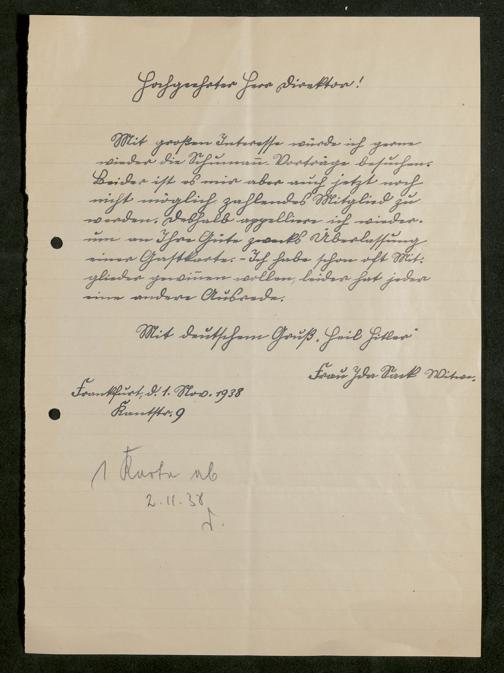 Hochgeehrter Herr Direktor!
Mit großem Interesse würde ich gerne
wieder die Schumann-Vorträge besuchen.
Leider ist es mir aber auch jetzt noch
nicht möglich zahlendes Mitglied zu
werden. Deshalb appelliere ich wieder-
um an Ihre Güte zwecks Überlassung
einer Gastkarte. - Ich habe schon oft Mit-
glieder gewinnen wollen, leider hat jeder
eine andere Ausrede.
Mit deutschem Gruß. Heil Hitler
Frau Ida Sack Witwe.
Frankfurt, d. 1. Nov. 1938
Kantstr. 9
1 Karte ab
2.11.38